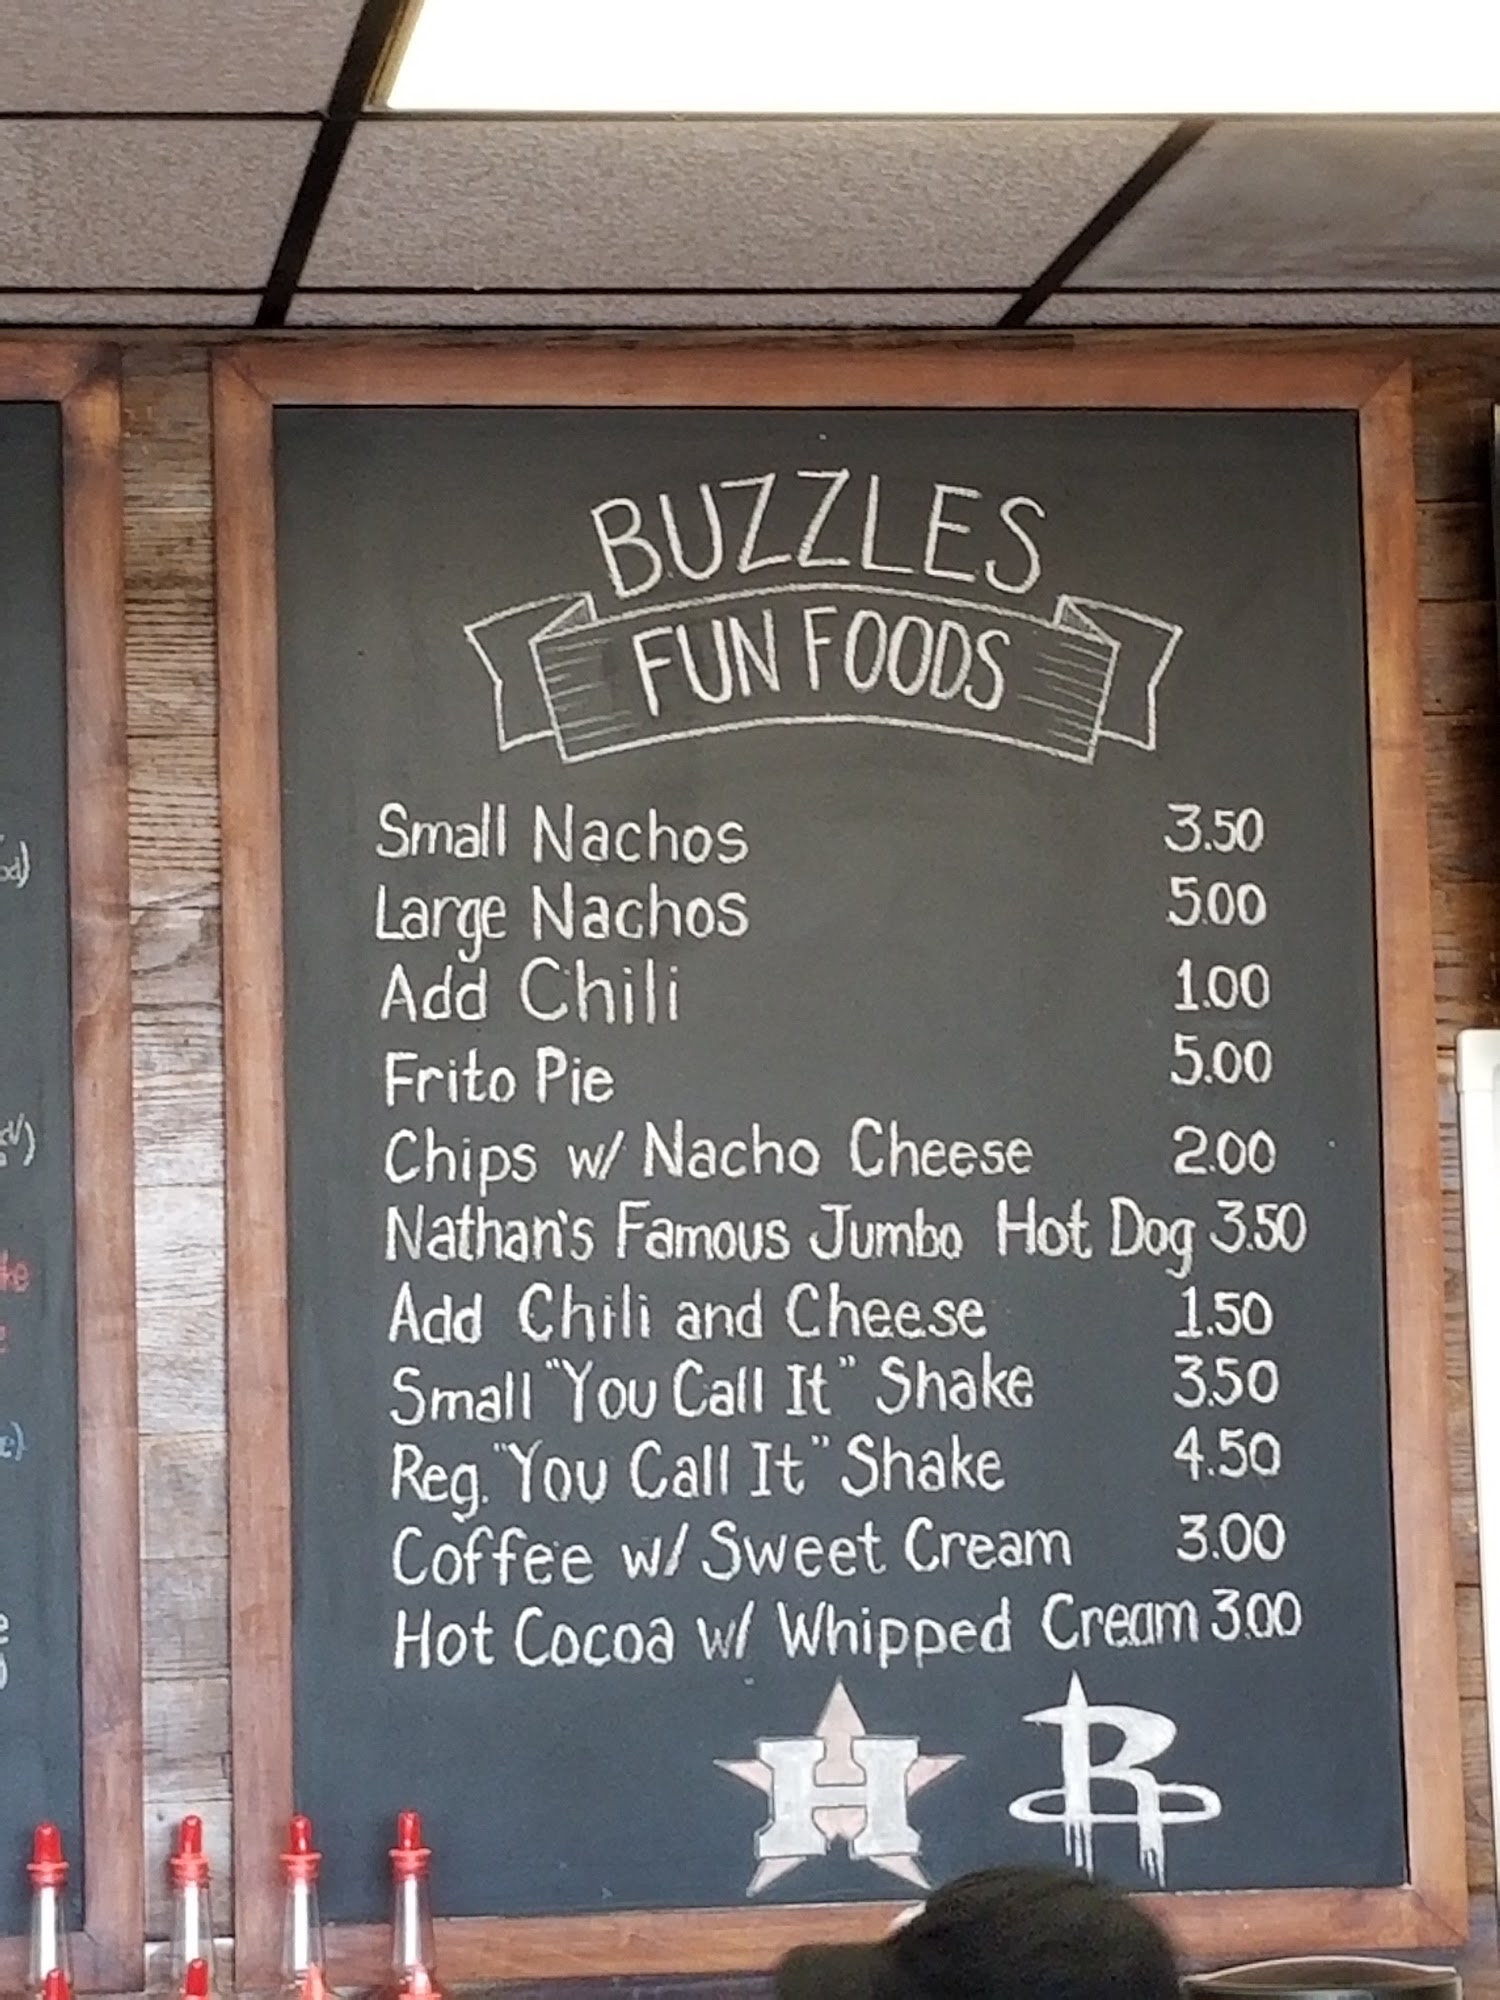 BUZZLES
FUN FOODS
Small Nachos 3.50
Large Nachos 5.00
Add Chili 1.00
Frito Pie 5.00
Chips w/ Nacho Cheese 2.00
Nathan's Famous Jumbo Hot Dog 3.50
Add Chili and Cheese 1.50
Small "You Call It" Shake 3.50
Reg. "You Call It" Shake 4.50
Coffee w/ Sweet Cream 3.00
Hot Cocoa w/ Whipped Cream 3.00
H R